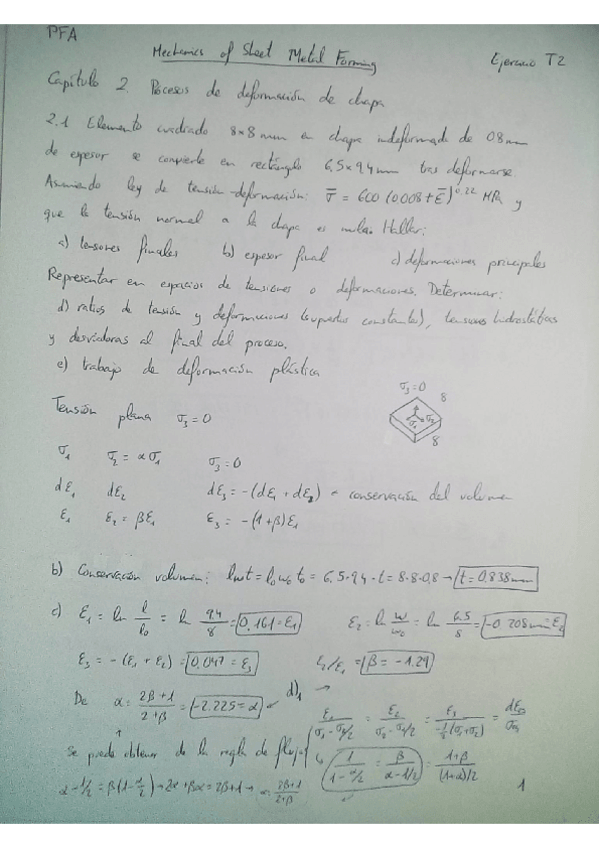 PFA
Mechanics of Sheet Metal Forming
Ejercicio T2
Capítulo 2. Procesos de deformación de chapa
2.1 Elemento cuadrado 8x8 mm en chapa indeformada de 0.8 mm
de espesor se convierte en rectángulo 6.5x9.4 mm tras deformarse
Asumiendo ley de tensión-deformación: σ̅ = 600 (0.008 + ε̅)^0.22 MPa y
que la tensión normal a la chapa es nula. Hallar:
a) tensiones finales b) espesor final c) deformaciones principales
Representar en espacios de tensiones o deformaciones. Determinar:
d) ratios de tensión y deformaciones (supuestos constantes), tensiones hidrostáticas
y desviadoras al final del proceso.
e) trabajo de deformación plástica
σ3=0
8
Tensión plana σ3=0
σ1 σ2
8
σ1 σ2 = ασ1 σ3=0
dε1 dε2 dε3 = -(dε1 + dε2) - conservación del volumen
ε1 ε2 = βε1 ε3 = -(1+β)ε1
b) Conservación volumen: lwt = l0w0t0 = 6.5·9.4·t = 8·8·0.8 → t = 0.838mm
c) ε1 = ln l/l0 = ln 9.4/8 = 0.161 = ε1 ε2 = ln w/w0 = ln 6.5/8 = -0.208 = ε2
ε3 = -(ε1 + ε2) = 0.047 = ε3 ε2/ε1 = β = -1.29
d)1 →
De α = 2β+1/2+β = -2.225 = α
ε1/σ1-σ2/2 = ε2/σ2-σ1/2 = ε3/-½(σ1+σ2) =
Se puede obtener de la regla de flujo
1/1-α/2 = β/α-1/2 = 1+β/(1+α)/2
α-1/2 = β(1-α/2) → 2α+βα = 2β+1 → α = 2β+1/2+β
1